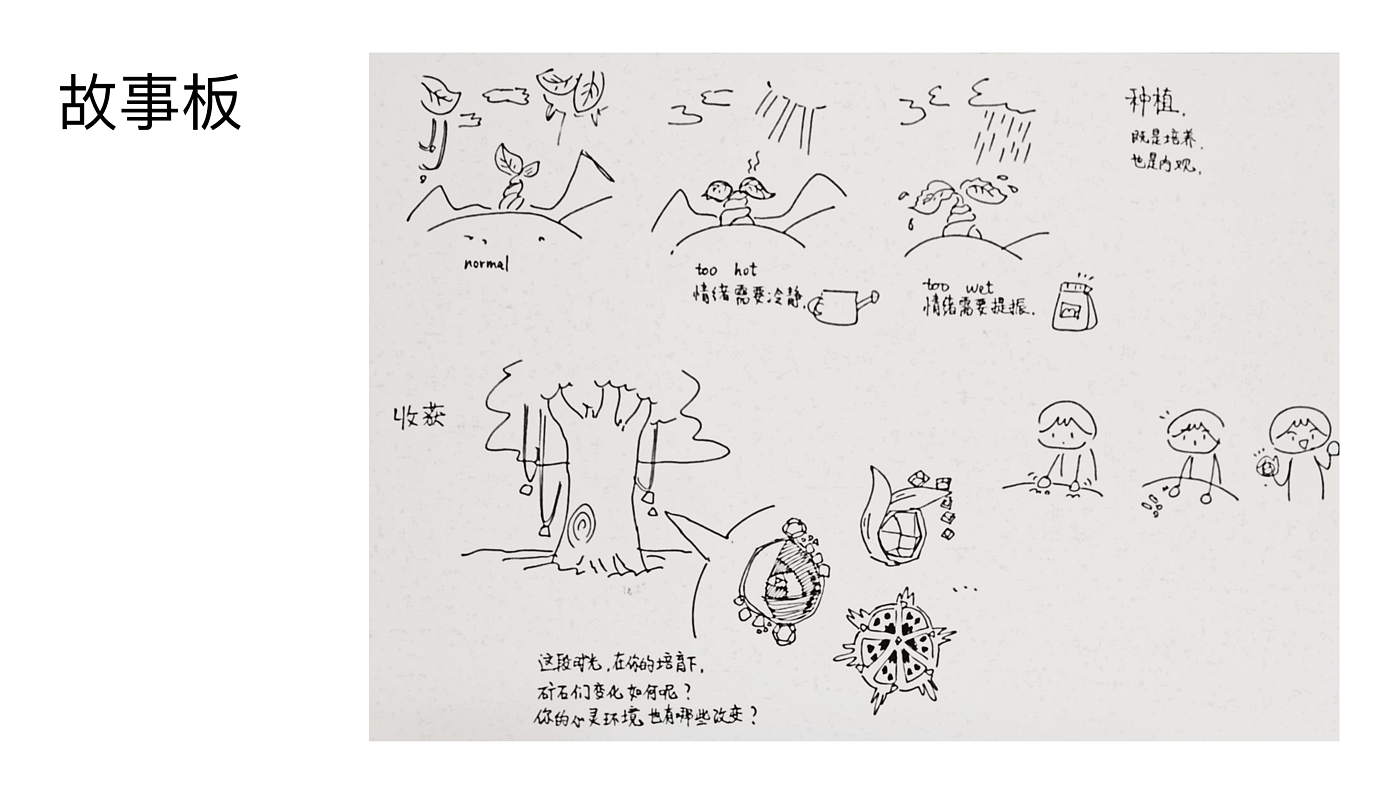 故事板
种植.
既是培养.
也是内观.
normal
too hot
情绪需要冷静.
too wet
情绪需要提振.
收获
这段时光,在你的培育下,
矿石们变化如何呢?
你的心灵环境也有哪些改变?